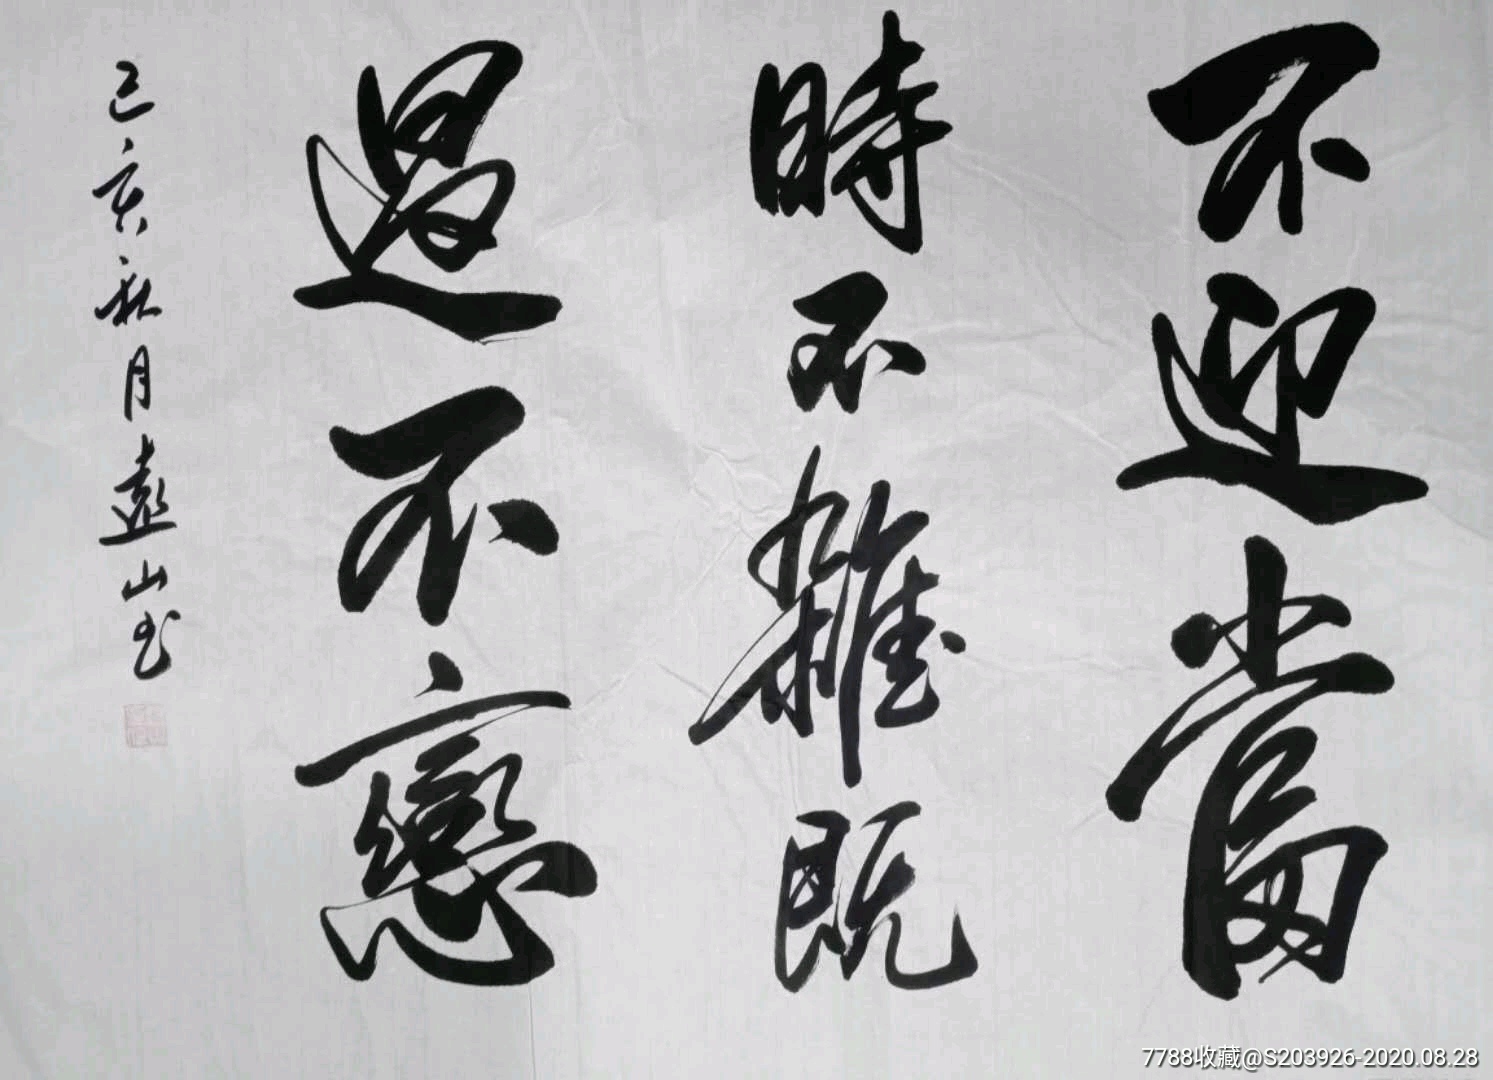 不迎當
時不雜既
過不戀
己亥秋月遠山书
7788收藏@S203926-2020.08.28